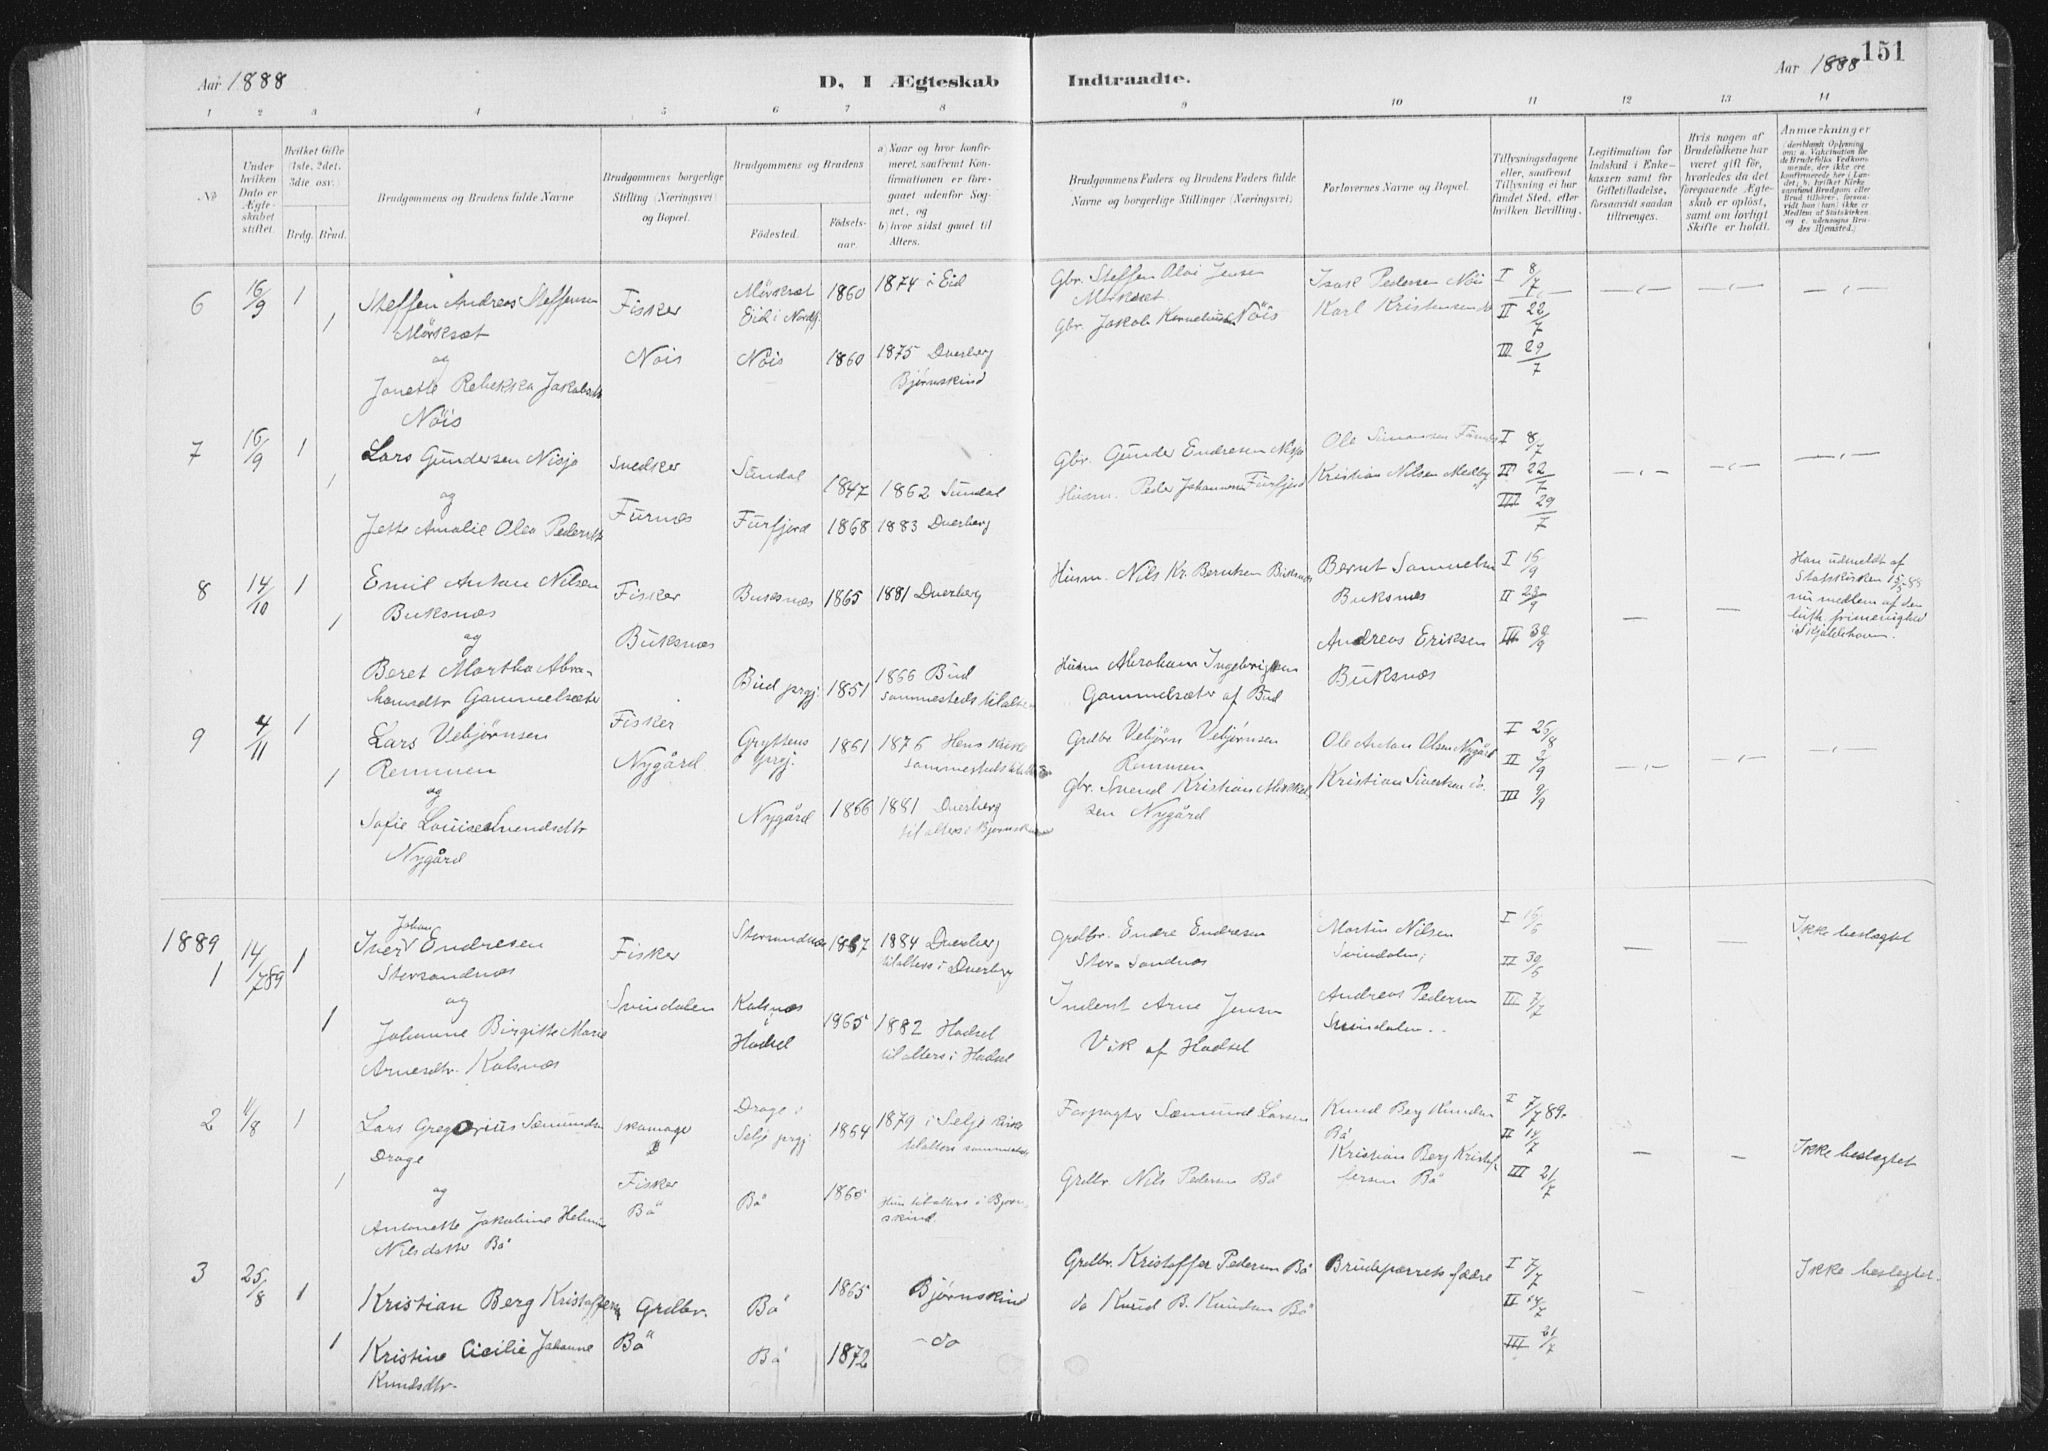 Aar 1888
D, I Ægteskab Indtraadte.
Aar 1888
151
1 2 3 4 5 6 7 8 9 10 11 12 13 14
№
Under hvilken Dato er Ægteskabet stiftet.
Hvilket Gifte (1ste, 2det, 3die osv.)
Brdg. Brud.
Brudgommens og Brudens fulde Navne
Brudgommens borgerlige Stilling (Næringsvei) og Bopæl.
Brudgommens og Brudens
Fødested.
Fødselsaar.
a) Naar og hvor konfirmeret, saafremt Konfirmationen er foregaaet udenfor Sognet, og
b) hvor sidst gaaet til Alters.
Brudgommens Faders og Brudens Faders fulde Navne og borgerlige Stillinger (Næringsvei)
Forlovernes Navne og Bopæl.
Tillysningsdagene eller, saafremt Tillysning ei har fundet Sted, efter hvilken Bevilling.
Legitimation for Indskud i Enkekassen samt for Giftetilladelse, forsaavidt saadan tiltrænges.
Hvis nogen af Brudefolkene har været gift før, hvorledes da det foregaaende Ægteskab er opløst, samt om lovligt Skifte er holdt.
Anmærkninger
6 16/9 1
Steffen Andreas Steffensen
Mørksæt
og
1
Jonette Rebekka Jakobsdtr
Nöis
Fisker
Nöis
Mörksæt
Eid i Nordfj.
1860
1874 i Eid
Nöis 1860 1875 Dverberg
Bjørnskind
Gbr. Steffen Olai Jensen
Mörksæt
Gbr. Jakob Kornelius Nöis
Isak Pedersen Nöis
Karl Kristensen do
I 8/7
II 22/7
III 29/7
7 16/9 1
Lars Gundersen Nisja
og
1
Jette Amalie Olea Pedersdtr
Snedker
Furnæs
Sundal 1847 1862 Sundal
Furfjord 1868 1883 Dverberg
Gbr. Gunder Endresen Nisja
Husm. Peder Johannesen Furfjord
Ole Simonsen Furnæs
Kristian Nilsen Medby
I 8/7
II 22/7
III 29/7
8 14/10 1
Emil Anton Nilsen
Buksnæs
og
1
Beret Martha Abrahamsdtr Gammelsæter
Fisker
Buksnæs
Buksnæs 1865 1881 Dverberg
Bud prgj. 1851 1866 Bud
sammesteds til alters
Husm. Nils Kr. Berntsen Buksnæs
Husm Abraham Ingebrigtsen
Gammelsæter af Bud
Bernt Samuelsen
Buksnæs
Andreas Eriksen
Buksnæs
I 16/9
II 23/9
III 30/9
Han udmeldt af
Statskirken 15/5 88
nu medlem af den
luth. frimenighed
i Skjoldehavn.
9 4/11 1
Lars Vebjørnsen
Remmen
og
1
Sofie Louise Svendsdtr
Nygård
Fisker
Nygård
Gryttens
prgj.
1861 1876 Hens kirke
sammesteds til alters
Nygård 1866 1881 Dverberg
til alters i Bjørnskind
Grdbr Vebjørn Vebjørnsen
Remmen
Gbr. Svend Kristian Mikkelsen Nygård
Ole Anton Olsen Nygård
Kristian Sivertsen do.
I 26/8
II 2/9
III 9/9
1889
1 14/7 89 1
Iver Johan Endresen
Storsandnæs
og
1
Johanne Birgitte Marie
Arnesdtr. Kalsnæs
Fisker
Svindalen
Storsandnæs 1867 1884 Dverberg
til alters i Dverberg
Kalsnæs
i
Hadsel
1965 1882 Hadsel
til alters i Hadsel
Grdbr. Endre Endresen
Store Sandnæs
Inderst Arne Jensen
Vik af Hadsel
Martin Nilsen
Svindalen;
Andreas Pedersen
Svindalen..
I 16/6
II 30/6
III 7/7
Ikke beslegtet
2 11/8 1
Lars Gregorius Sæmundsen
Drage
og
1
Antonette Jakobine Helmine
Nilsdatter Bö
Skomager
&
Fisker
Bö
Drage i
Selje prgj. 1864 1879 i Selje kirke
til alters sammesteds
Bö 1865 Hun til alters i Bjørnskind.
Forpagter Sæmund Larsen
Grdbr. Nils Pedersen Bö
Knud Berg Knudsen
Bö
Kristian Berg Kristoffersen Bö
I 7/7 89.
II 14/7
III 21/7
Ikke beslegtet
3 25/8 1
Kristian Berg Kristoffersen
1
Kristine Cicilie Johanne
Knudsdtr.
Grdbr.
Bö
Bö 1865 Bjørnskind
Bö 1872 do
Grdbr. Kristoffer Pedersen Bö
do Knud B. Knudsen Bö
Brudeparrets fædre
I 7/7
II 14/7
III 21/7
Ikke beslegtet.